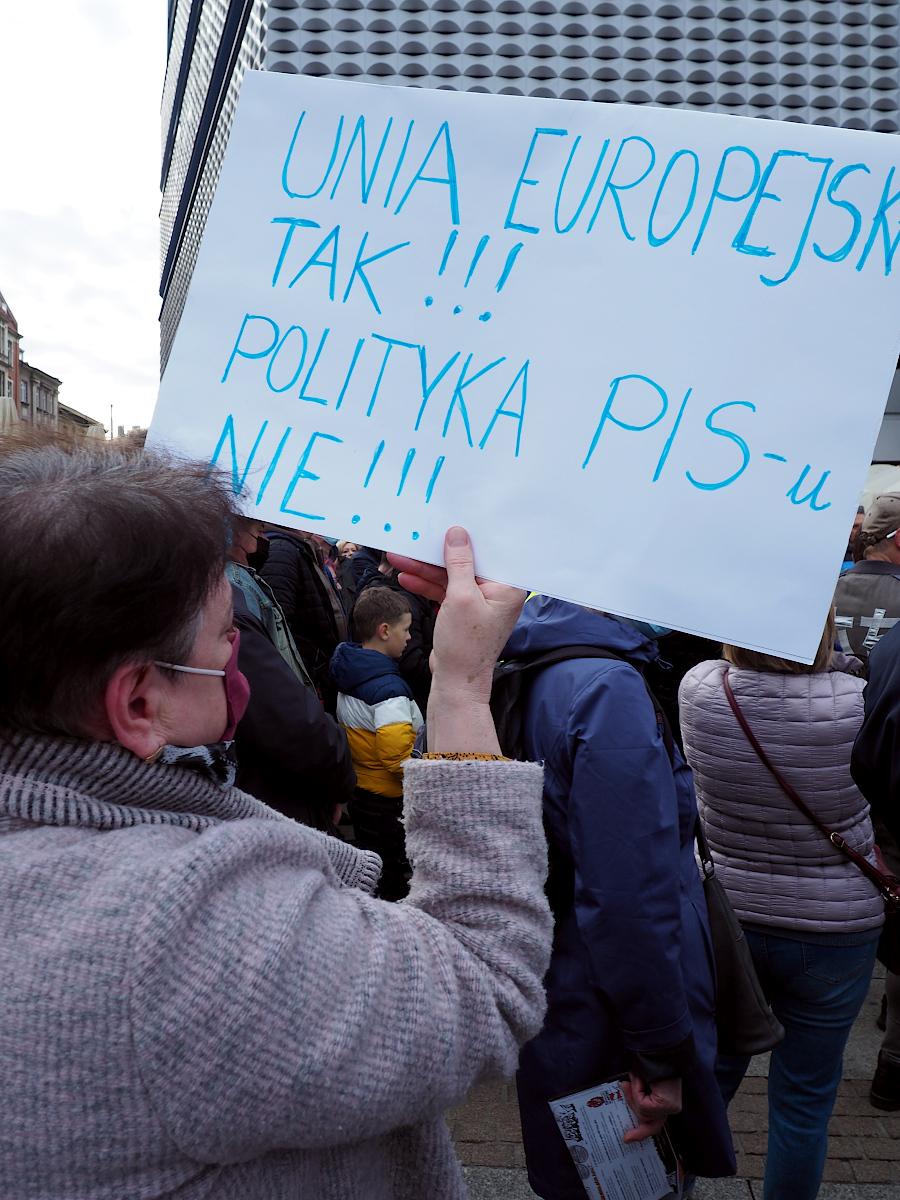 UNIA EUROPEJSK
TAK !!!
POLITYKA PIS-u
NIE !!!